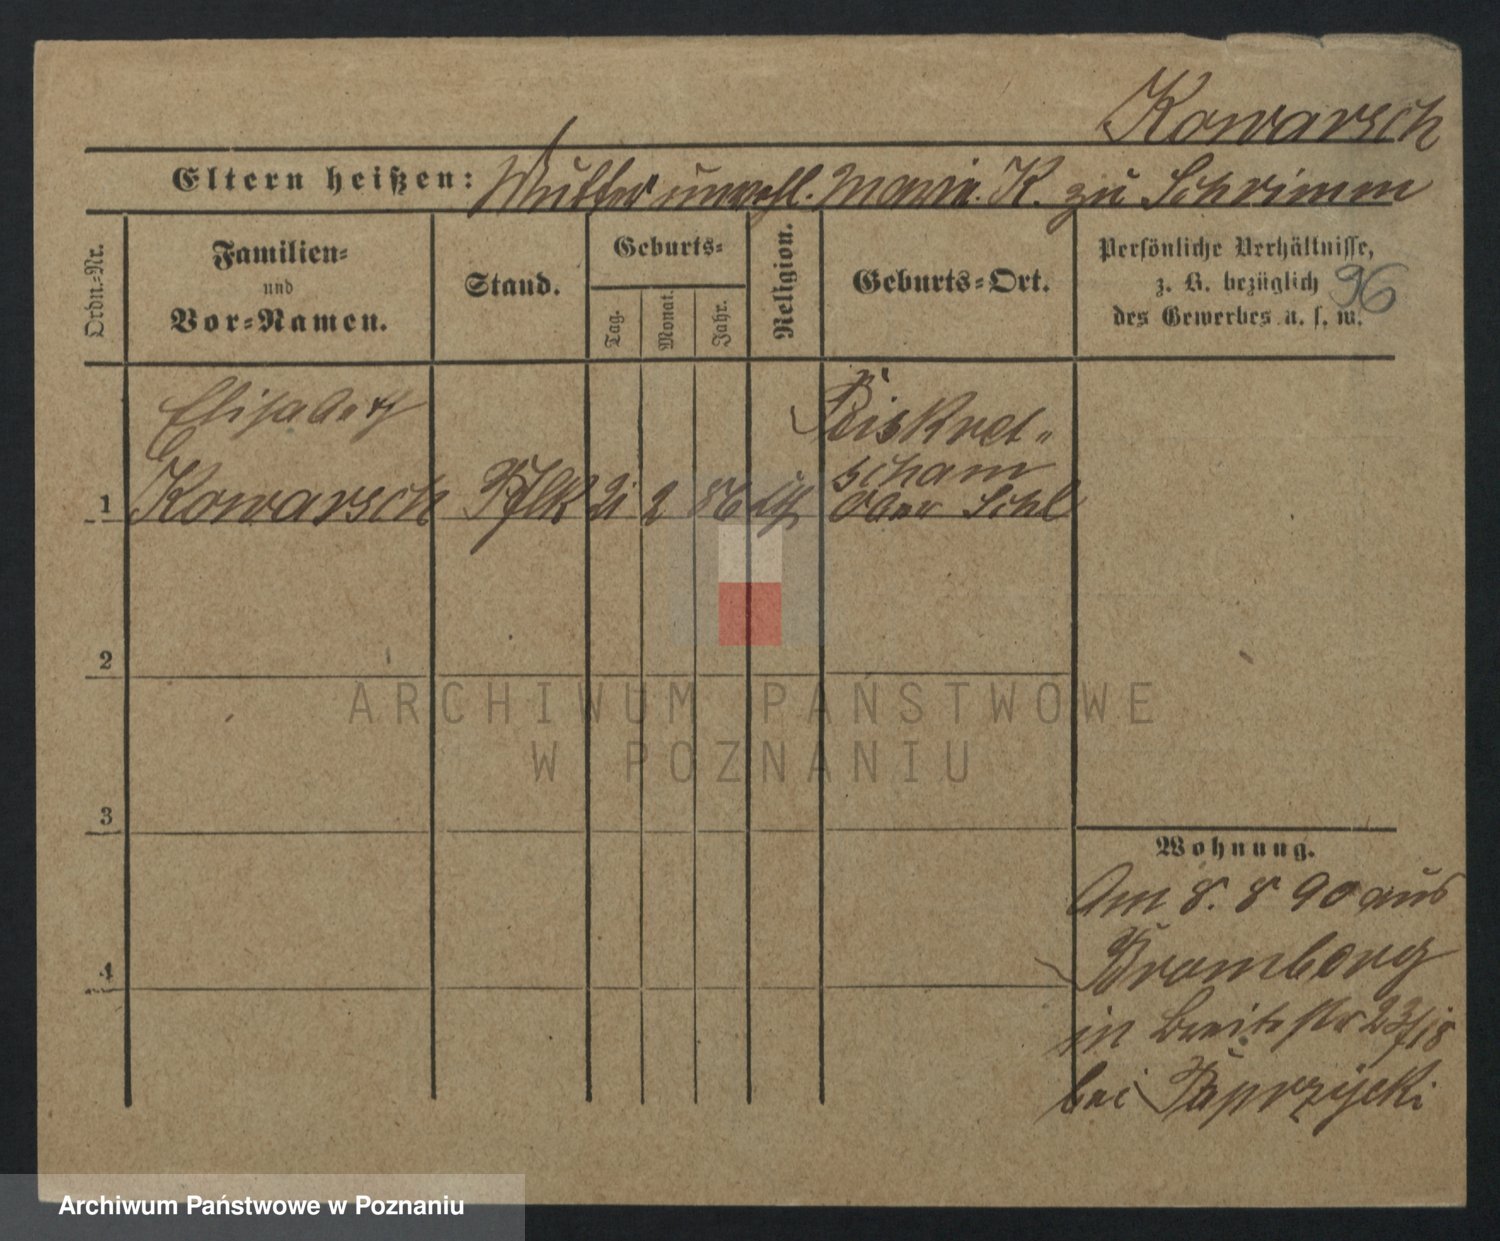 Kowarsch
Eltern heißen: Mutter unverehl. Maria K. zu Schrimm
Ordn.-Nr.
Familien-
und
Vor-Namen.
Stand.
Geburts-
Tag.
Monat.
Jahr.
Religion.
Geburts-Ort.
Persönliche Verhältnisse,
z. B. bezüglich
des Gewerbes u. s. w.
96
Elisabeth
Kowarsch
Pflk
2
86
Peiskret-
scham
Ober Schl
1
2
3
4
Wohnung.
Am 8. 8 90 aus
Bromberg
in Breitestr 23/18
bei Paprzycki
ARCHIWUM PAŃSTWOWE
W POZNANIU
Archiwum Państwowe w Poznaniu